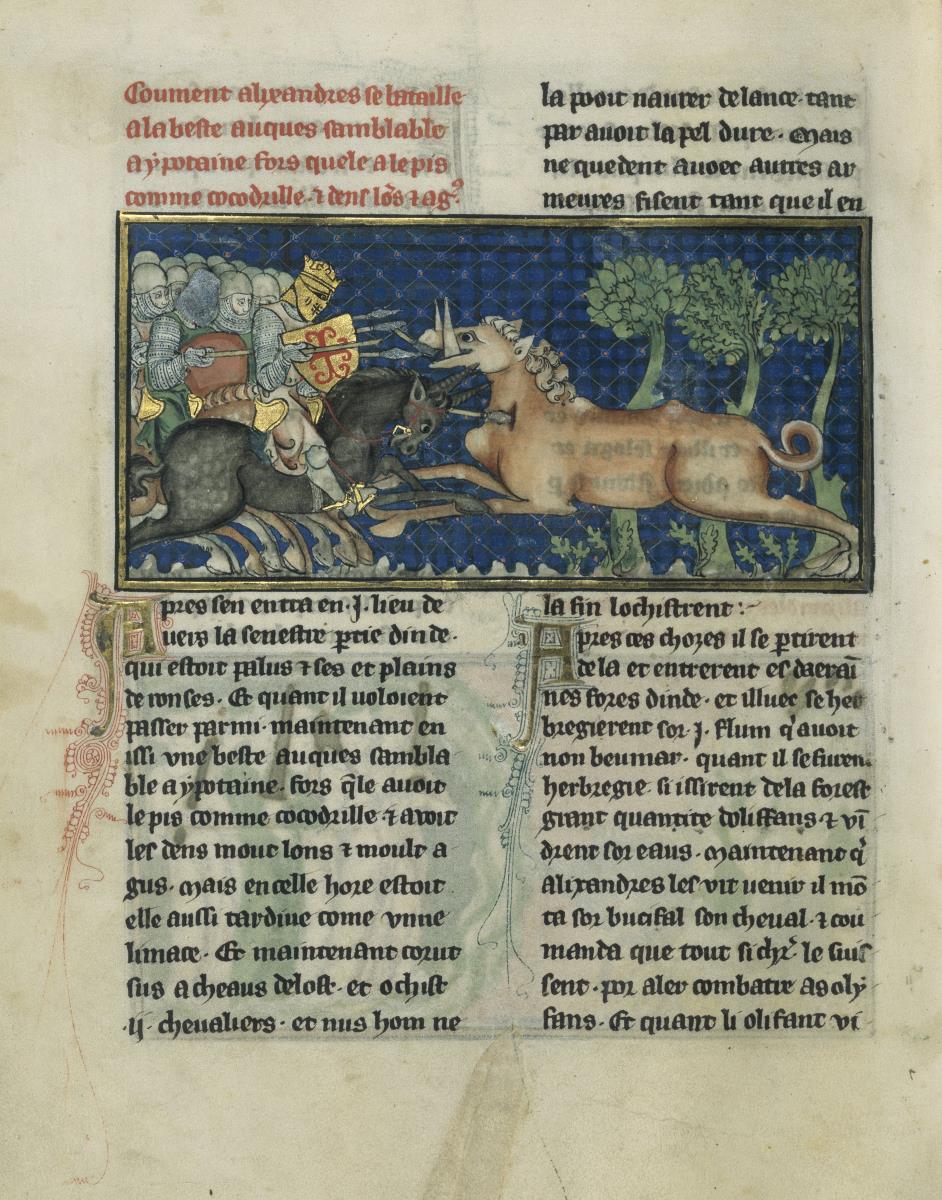 Coument alixandres se bataille
a la beste auques samblable
a ypotaine fors quele a le pis
comme cocodrille · ⁊ dens lōs ⁊ agꝰ
pres sen entra en · J · lieu de
Auers la senestre ꝑtie dinde ·
qui estoit palus ⁊ ses et plains
de ronses · Et quant il uoloient
passer parmi · maintenant en
issi vne beste auques sambla
ble a ypotaine · fors q̄le auoit
le pis comme cocodrille · ⁊ avoit
les dens mout lons ⁊ moult a
gus · Mais en celle hore estoit
elle aussi tardiue come vnne
limace · Et maintenant corut
sus a cheaus delost · et ochist
· ij · cheualiers · et nus hom ne
la pooit naurer de lance · tant
par auoit la pel dure · Mais
ne quedent auoec autres ar
meures fisent tant que il en
la fin lochistrent :~
Apres ces choses il se ꝑtirent
de la et entrerent es daeraī
nes fores dinde · et illuec se her
bregierent sor · J · flum q'auoit
non beumar · quant il se furent
herbregie · si issirent de la forest
grant quantite doliffans ⁊ vī
drent sor eaus · Maintenant q̄
Alixandres les vit uenir il mō
ta sor bucifal son cheual · ⁊ cou
manda que tout si chr̄ · le siuis
sent · por aler combatre as oly
fans · Et quant li olifant vi